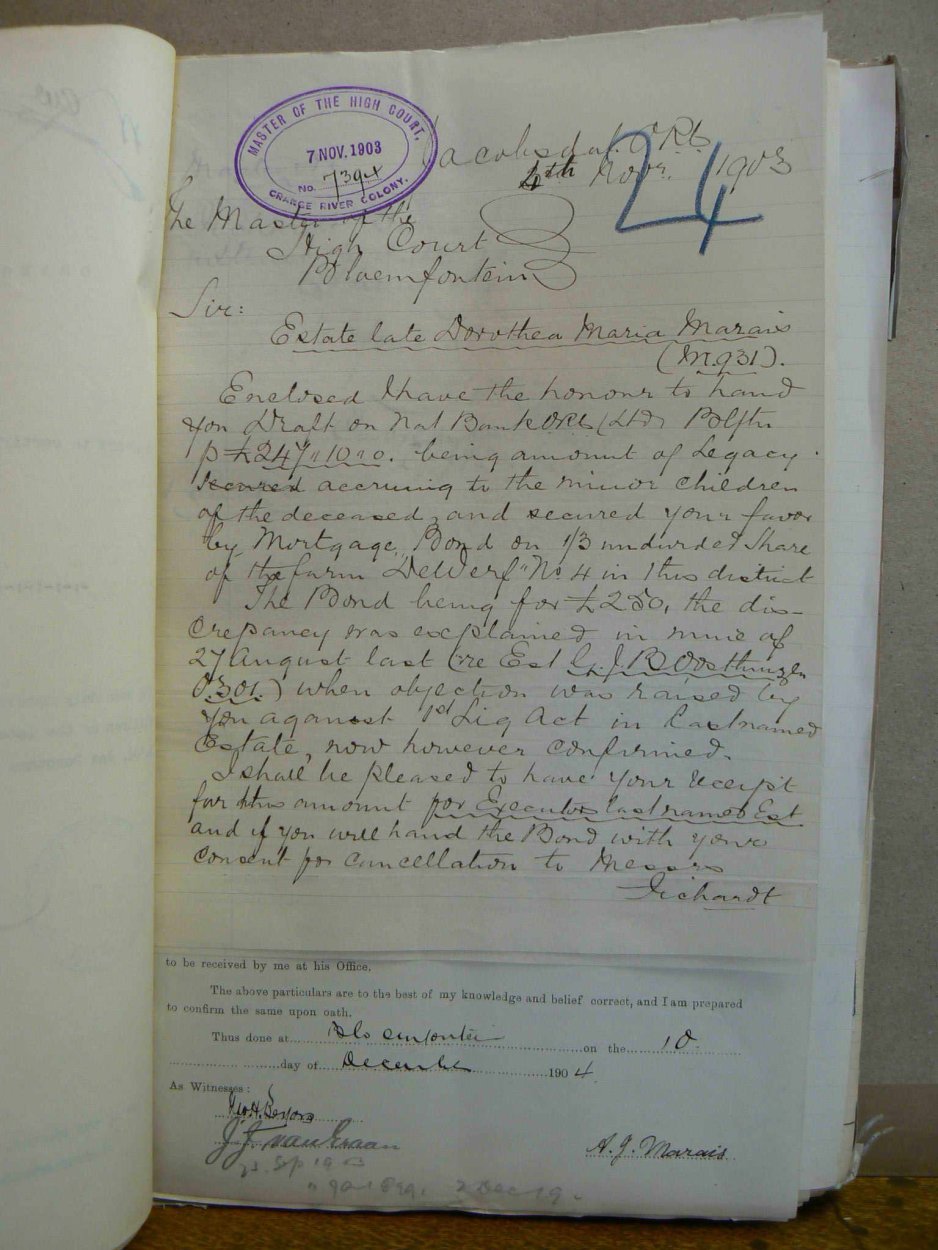 MASTER OF THE HIGH COURT,
7 NOV. 1903
No. 7394
ORANGE RIVER COLONY.
Jacobsdal. ORC
4th Novr. 1903
24
The Master of the
High Court
Bloemfontein
Sir:
Estate late Dorothea Maria Marais
(M.931).
Enclosed I have the honour to hand
you Draft on Nat Bank ORC (Ltd) Blftn
p £247"10"0. being amount of Legacy
secured accruing to the minor children
of the deceased, and secured your favor
by Mortgage Bond on 1/3 undivided Share
of the farm "De Werf" No. 4 in this district
The Bond being for £250, the dis-
crepancy was explained in mine of
27 August last (re Est G.J.B Oosthuizen
O.301.) when objection was raised by
you against 1st Liq Act in lastnamed
Estate, now however confirmed.
I shall be pleased to have your receipt
for this amount for Executors lastnamed Est
and if you will hand the Bond with your
consent for cancellation to Messrs
Fichardt
to be received by me at his Office.
The above particulars are to the best of my knowledge and belief correct, and I am prepared
to confirm the same upon oath.
Thus done at Bloemfontein on the 10
day of December 1904.
As Witnesses:
J.J. van Graan
A. J. Marais
23. Sep 1903